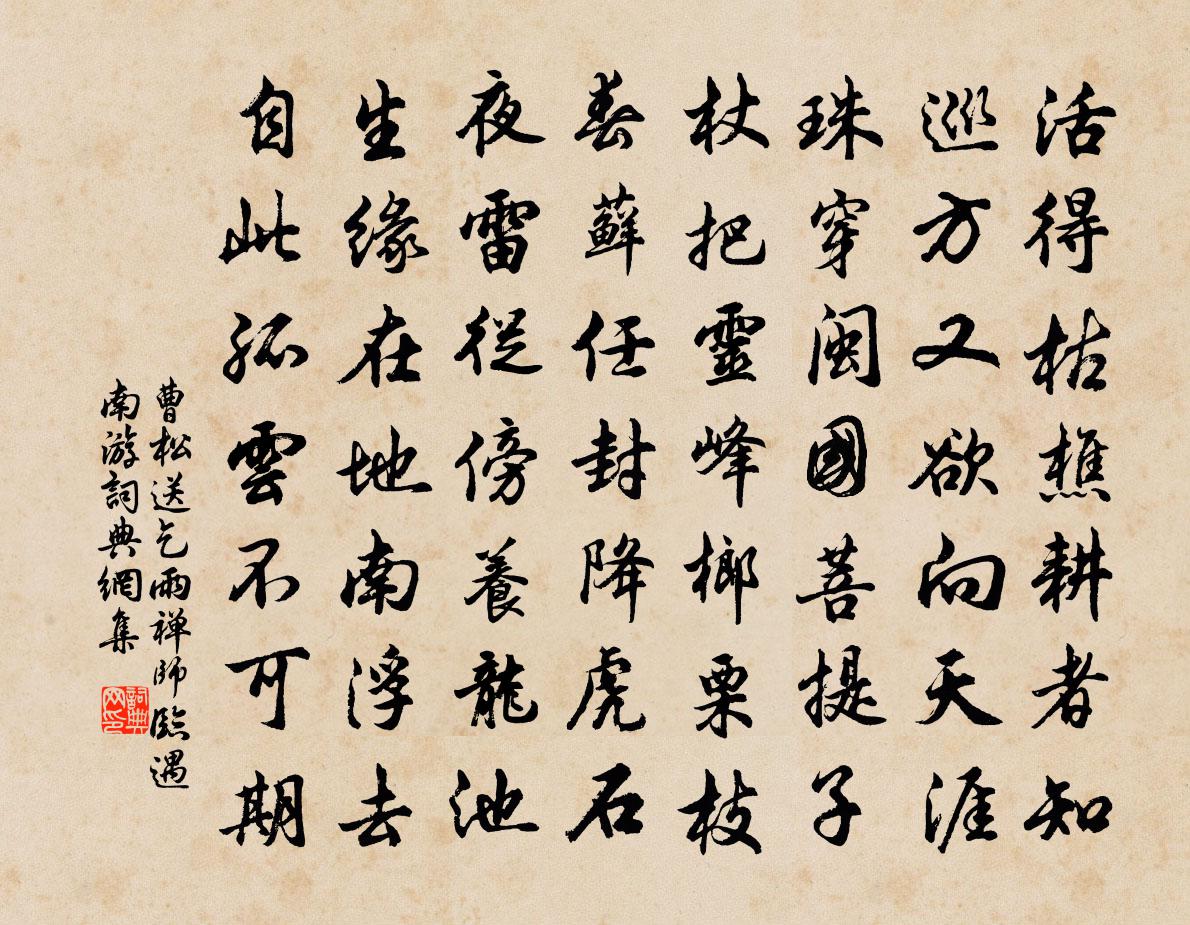 活得枯樵耕者知
巡方又欲向天涯
珠穿閩國菩提子
杖把靈峰榔栗枝
春蘚任封降虎石
夜雷從傍養龍池
生緣在地南浮去
自此孤雲不可期
曹松送乞雨禅師臨遇
南游詞典網集
詞典
网印